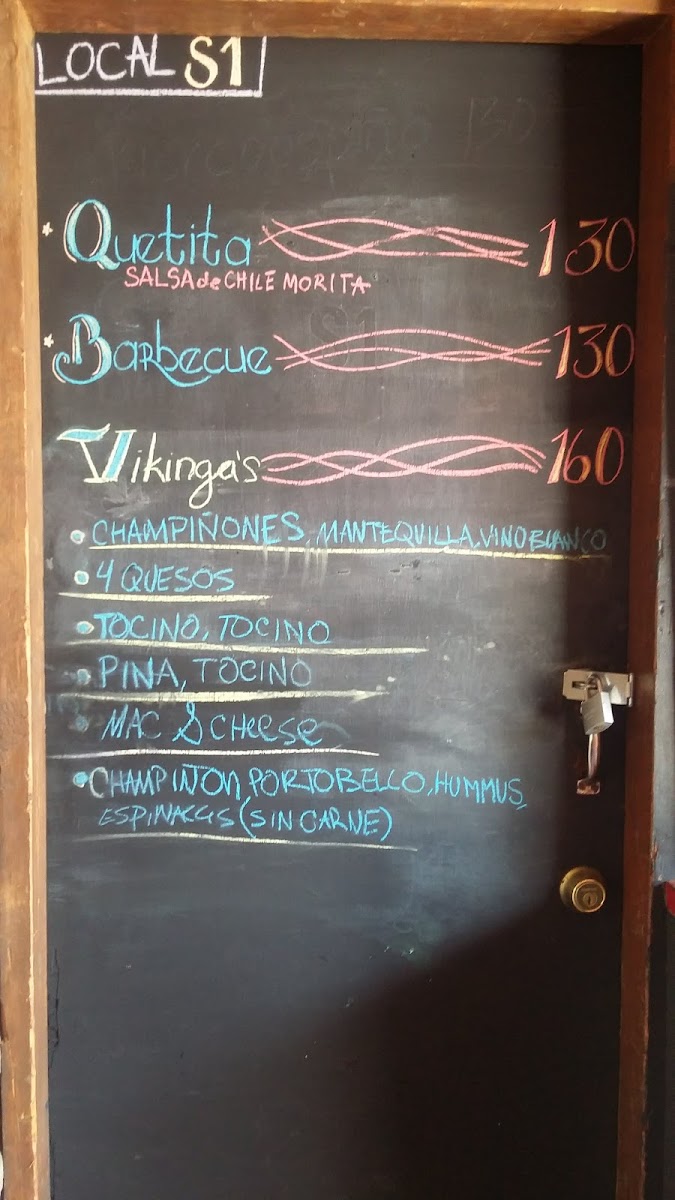 LOCAL S1
130
* Quetita 130
SALSA de CHILE MORITA
* Barbecue 130
Vikinga's 160
• CHAMPIÑONES, MANTEQUILLA, VINO BLANCO
• 4 QUESOS
• TOCINO, TOCINO
• PIÑA, TOCINO
• MAC & CHEESE
• CHAMPIÑON PORTOBELLO, HUMMUS,
ESPINACAS (SIN CARNE)